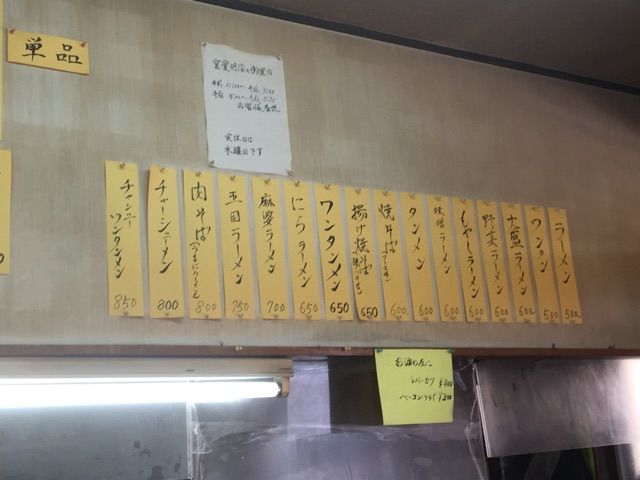 単品
営業時間の御案内
定休日は
水曜日です
ラーメン 500
ワンタン 500
大盛ラーメン 600
野菜ラーメン 600
もやしラーメン 600
味噌ラーメン 600
タンメン 600
焼そば 600
揚げ焼そば 650
ワンタンメン 650
にらラーメン 650
麻婆ラーメン 700
五目ラーメン 750
肉そば 800
チャーシューメン 800
チャーシューワンタンメン 850
¥400
ベーコン ¥300